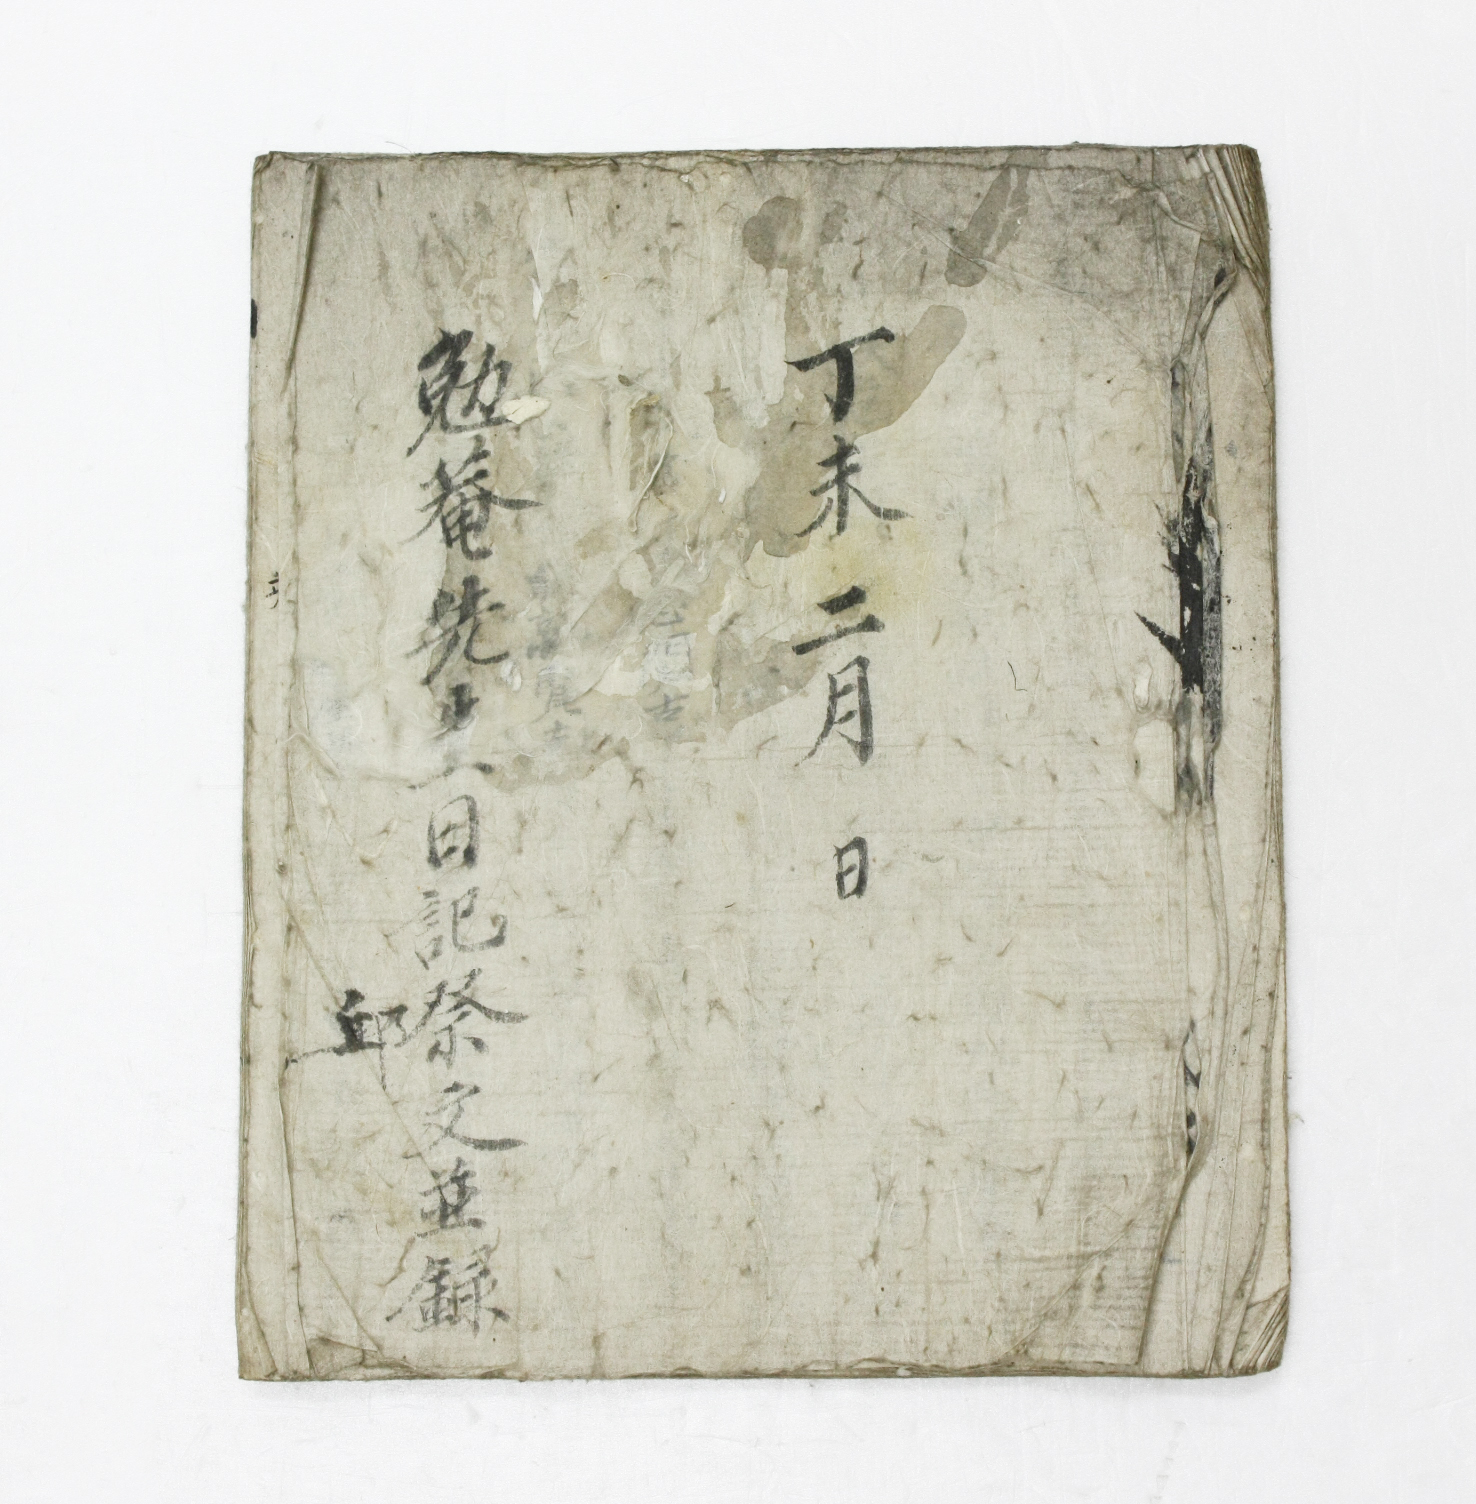 丁未二月 日
勉菴先生日記祭文並錄
邱